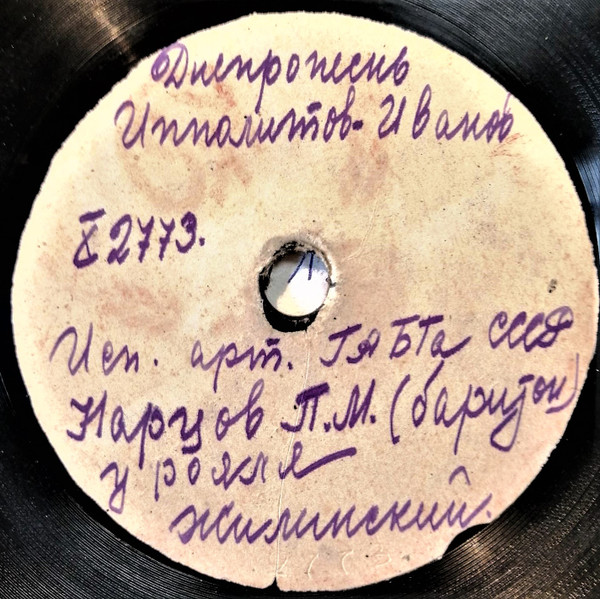 Днепропеснь
Ипполитов-Иванов
X 2773.
Исп. арт. ГАБТа СССР
Нарцов П.М. (баритон)
у рояля
Жилинский.